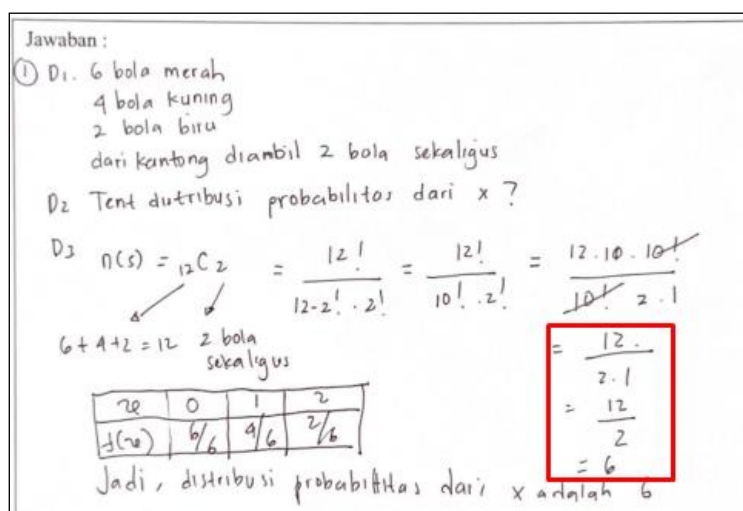 Jawaban :
① D1. 6 bola merah
4 bola kuning
2 bola biru
dari kantong diambil 2 bola sekaligus
D2 Tent dutribusi probabilitas dari x ?
D3 n(s) = 12C2 = 12! / 12-2! . 2! = 12! / 10! . 2! = 12 . 10 . 10! / 10! 2 . 1
6 + 4 + 2 = 12 2 bola sekaligus
= 12 . / 2 . 1
= 12 / 2
= 6
x 0 1 2
f(x) 6/6 4/6 2/6
Jadi, distribusi probabilitas dari x adalah 6